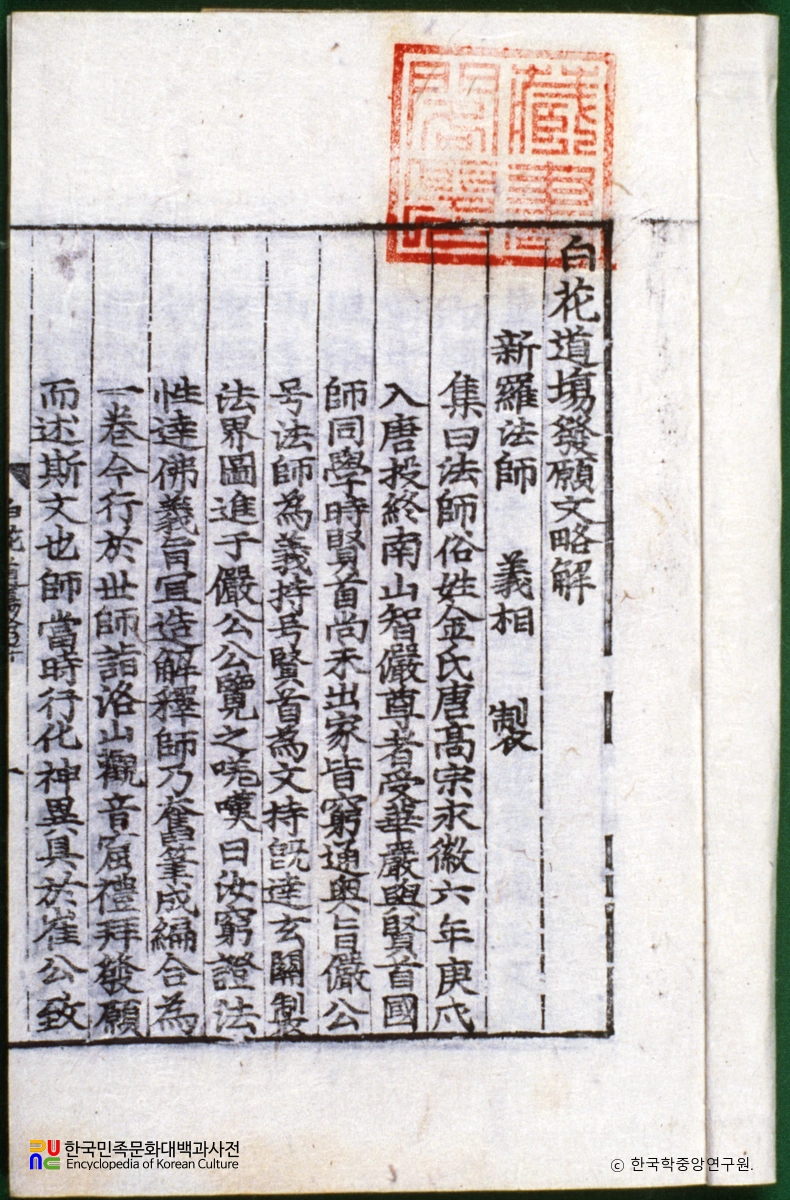 白花道場發願文略解
新羅法師 義相 製
集曰法師俗姓金氏唐高宗永徽六年庚戌
入唐投終南山智儼尊者受華嚴與賢首國
師同學時賢首尚未出家皆窮通奧旨儼公
号法師為義持号賢首為文持旣達玄關製
法界圖進于儼公公覽之嘆曰汝窮證法
性達佛義旨宜造解釋師乃奮筆成編合為
一卷今行於世師詣洛山觀音窟禮拜發願
而述斯文也師當時行化神異具於崔公致
白花道場
一
藏書
閣印
한국민족문화대백과사전
Encyclopedia of Korean Culture
ⓒ 한국학중앙연구원.